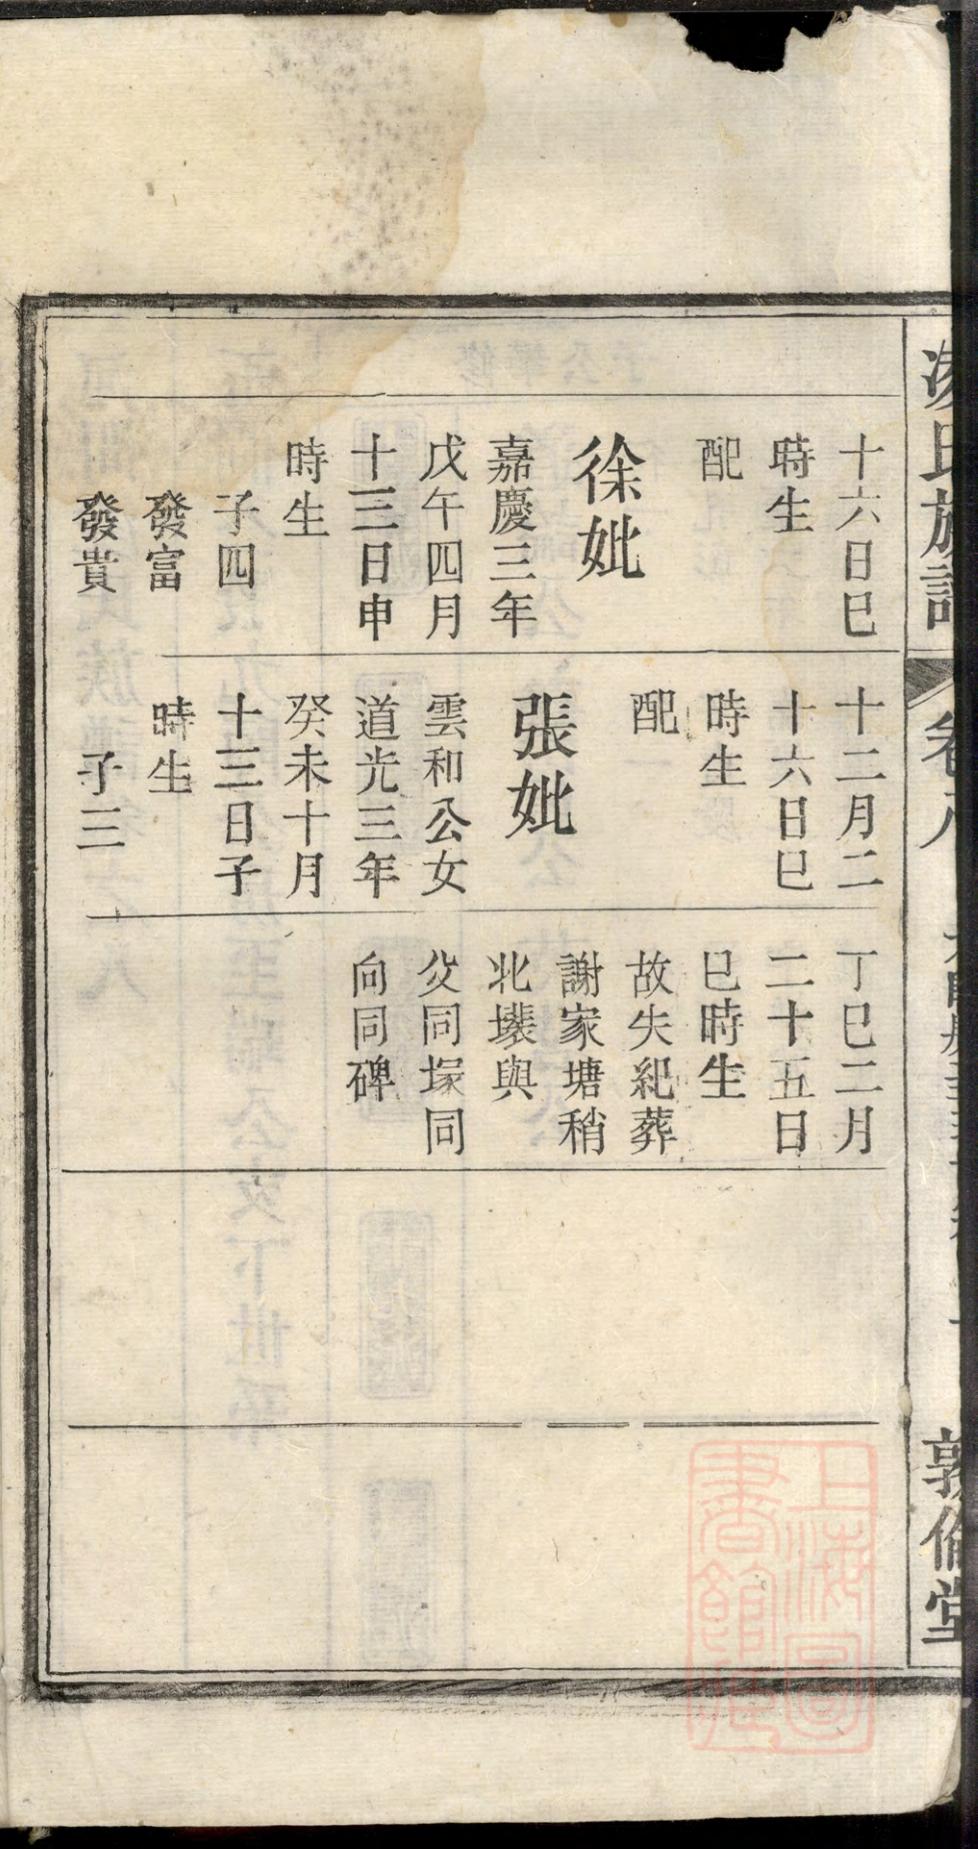 十六日巳
時生
配
徐妣
嘉慶三年
戊午四月
十三日申
時生
子四
發富
發貴
十二月二
十六日巳
時生
配
張妣
雲和公女
道光三年
癸未十月
十三日子
時生
子三
丁巳二月
二十五日
巳時生
故失紀葬
謝家塘稍
北塟與
父同塚同
向同碑
氏族譜
卷八
敦倫堂
上海圖
書館藏